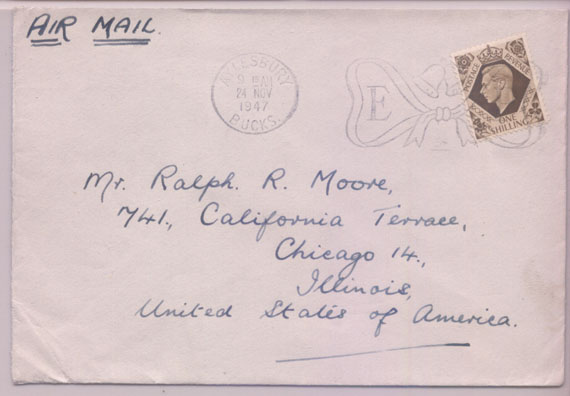 AIR MAIL.
AYLESBURY
9 15 AM
24 NOV
1947
BUCKS.
E
POSTAGE REVENUE
ONE SHILLING
Mr. Ralph. R. Moore,
741., California Terrace,
Chicago 14.,
Illinois,
United States of America.